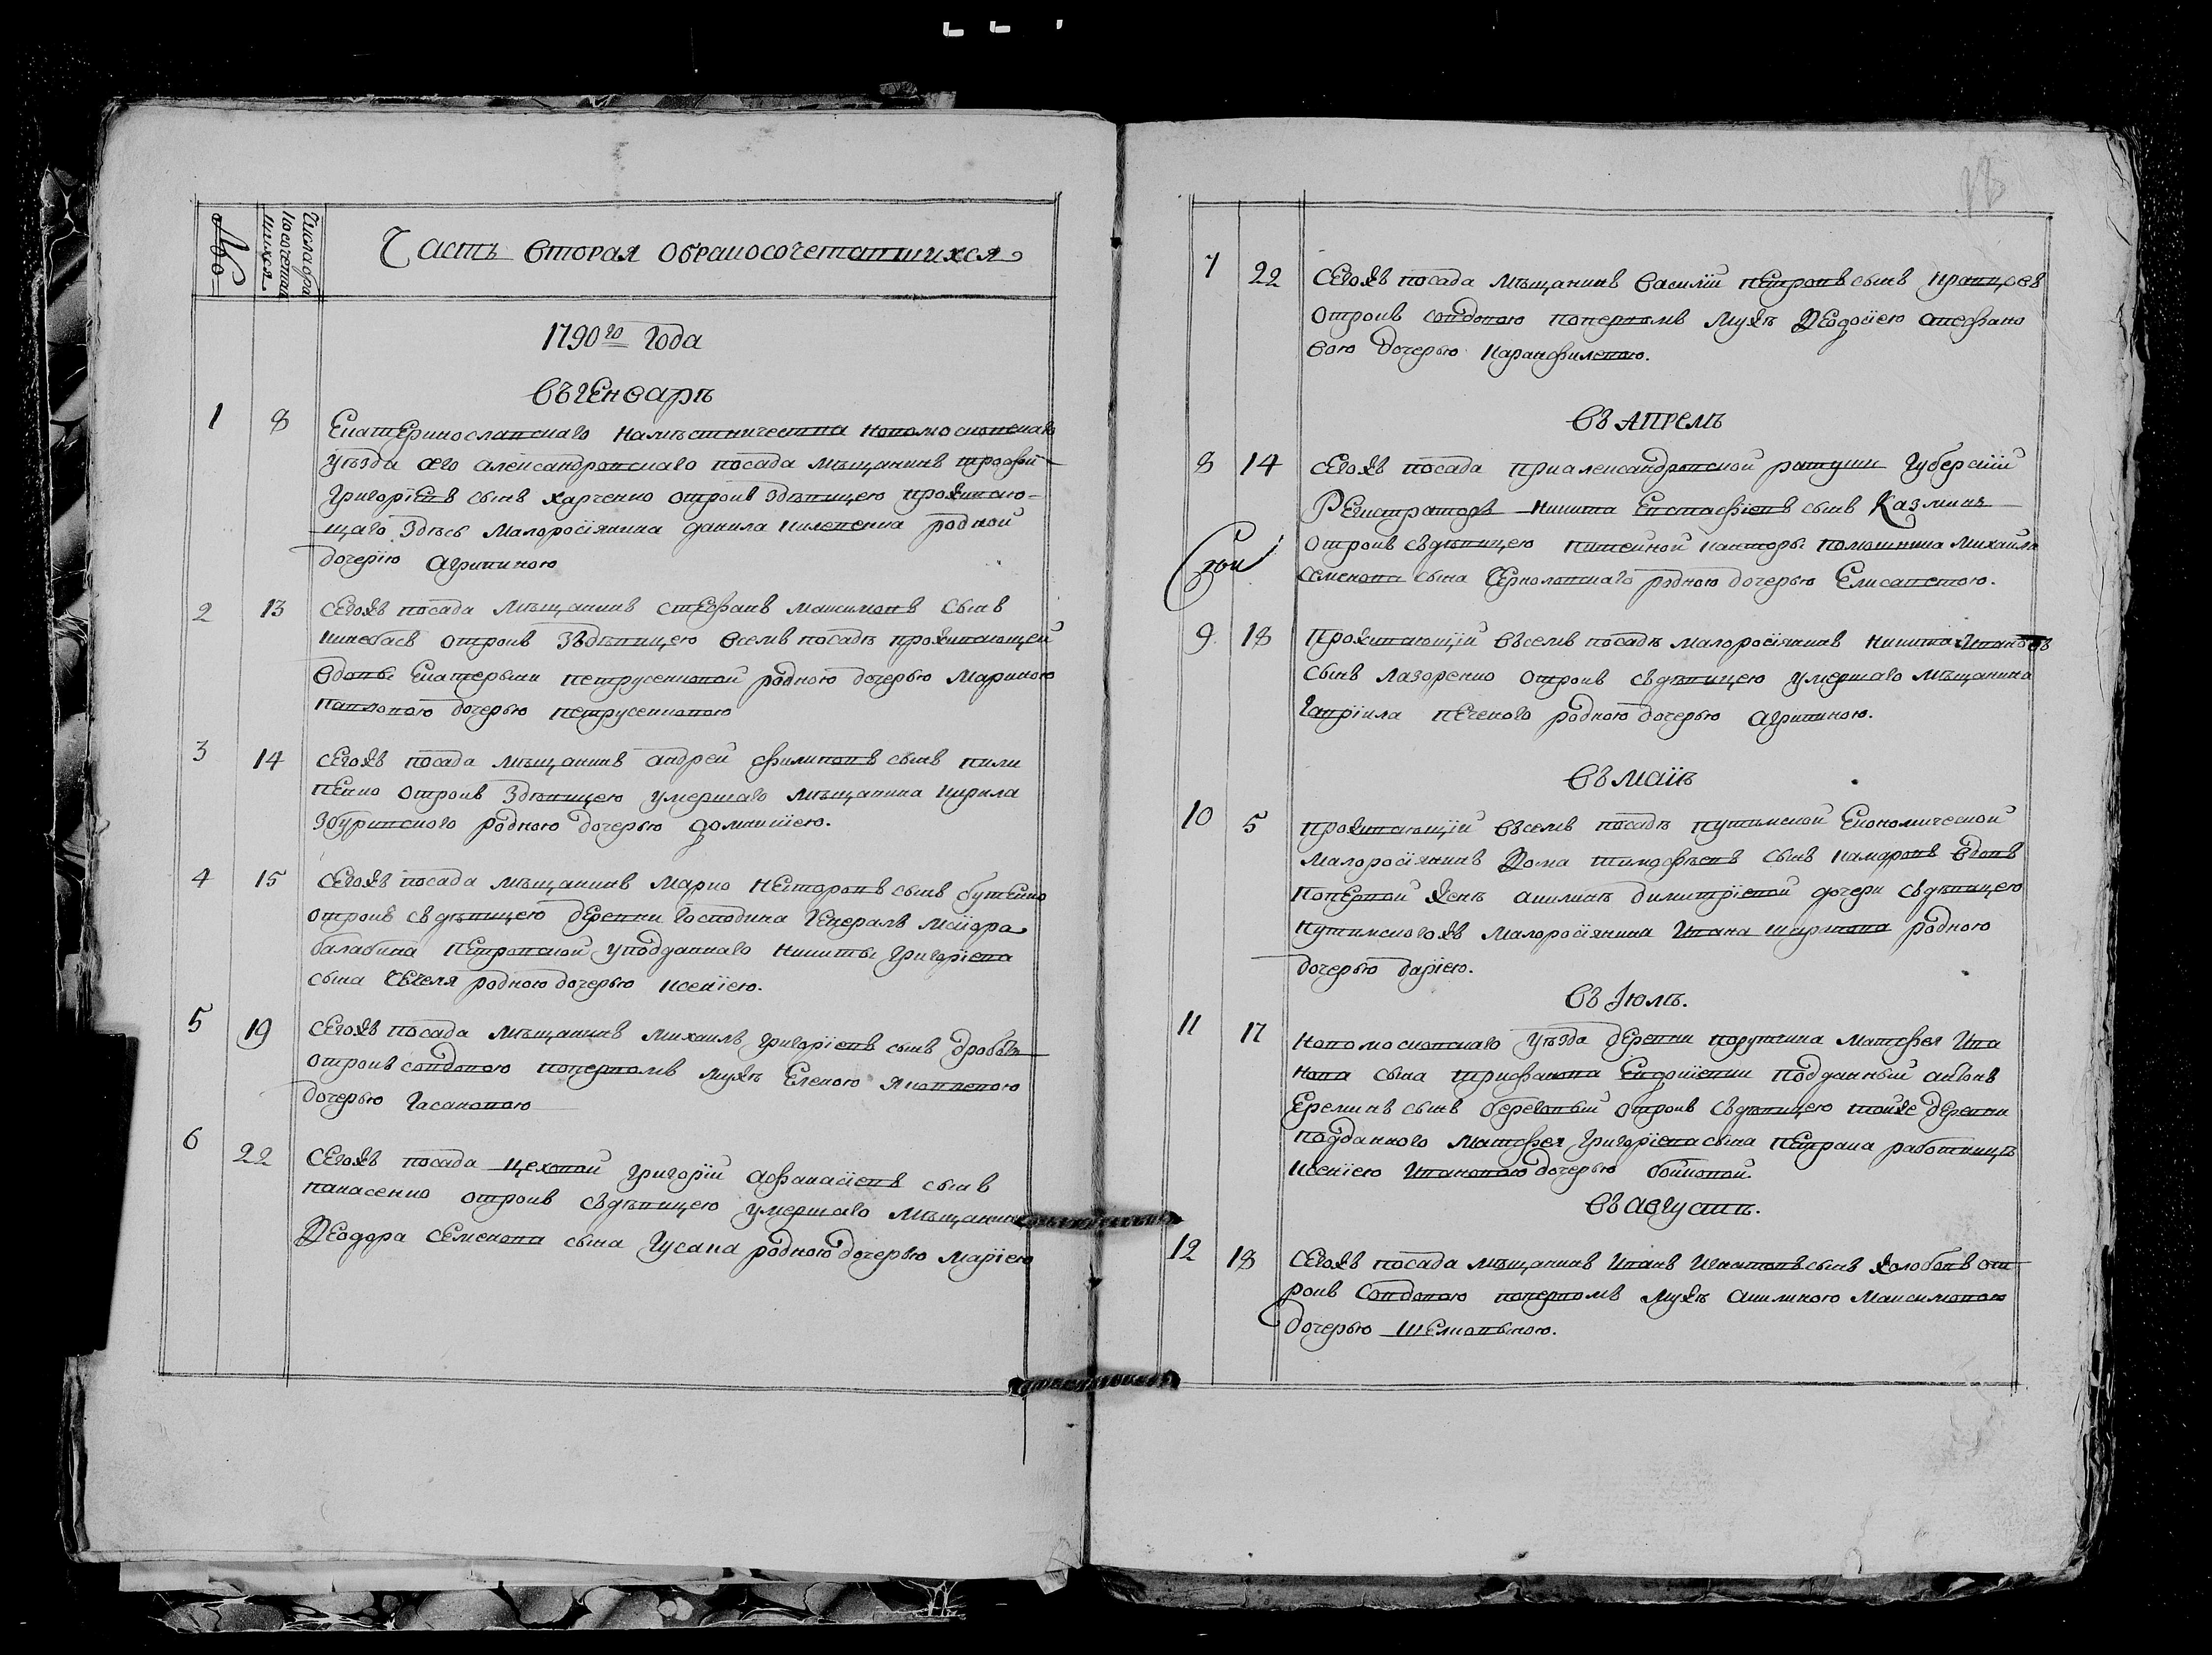 №
Числа бра
косочетав
шихся
Часть вторая обракосочетавшихся
1790го года
въ генваръ
1 8 Екатеринославскаго намѣстничества новомосковскаго
уѣзда сего александровскаго посада мѣщанинъ трофим
григорїевъ сынъ харченко отрокъ здѣвицею проживаю-
щаго здѣсь малоросїянина данила родной
дочерїю агрипиною
2 13 сегожъ посада мѣщанинъ стефанъ максимовъ сынъ
отрокъ зъдѣвицею всемъ посадѣ проживающей
вдовы Екатерыни петрусенковой родною дочерью мариною
павловою дочерью петрусенковою
3 14 сегожъ посада мѣщанинъ андрей филиповъ сынъ пили
пенко отрокъ здѣвицею умершаго мѣщанина кирила
збуривского родною дочерью домникїею.
4 15 сегожъ посада мѣщанинъ марко несторовъ сынъ бутенко
отрокъ съдѣвицею деревни господина генералъ маїора
балабина петровской уподданнаго никиты григорїева
сына чечеля родною дочерью ксенїею.
5 19 сегожъ посада мѣщанинъ михаилъ григорїевъ сынъ
отрокъ совдовою поперномъ мужѣ Еленою яковлевою
дочерью гасановою
6 22 сегожъ посада цеховой григорїй афанасїевъ сынъ
панасенко отрокъ съдѣвицею умершаго мѣщанина
Ѳеодора семенова сына гусака родною дочерью марїею
7 22 сегожъ посада мѣщанинъ василїй петровъ сынъ кравцовъ
отрокъ совдовою поперномъ мужѣ Ѳеодосїею стефано
вою дочерью каранфилевою.
въ апрелѣ
8 14 сегожъ посада приалександровской ратуши губерскїй
Регистраторъ никита Евстафїевъ сынъ Казминъ
отрокъ съдѣвицею питейной канторы помошника михаила
семенова сына Чернолавскаго родною дочерью Елисаветою.
9 18 Проживающїй въсемъ посадѣ малоросїянинъ никита ивановъ
сынъ лазоренко отрокъ съдѣвицею умершаго мѣщанина
гаврїила печеного родною дочерью агрипиною.
въ маїѣ
10 5 проживающїй въсемъ посадѣ путимской Економической
малоросїянинъ Ѳома тимофѣевъ сынъ камаровъ вдовъ
поперной женѣ акилинѣ димитрїевой дочери съдѣвицею
путимскогожъ малоросїянина ивана родною
дочерью дарїею.
въ Iюлѣ.
11 17 новомосковскаго уѣзда деревни порутчика матфея ива
нова сына трифанова подданный антонъ
Ереминъ сынъ береговый отрокъ съдѣвицею тойже деревни
подданного матфея григорїева сына петрана работницѣ
ксенїею ивановою дочерью бойковой.
въ августѣ.
12 18 сегожъ посада мѣщанинъ иванъ игнатовъ сынъ жолобовъ от
рокъ совдовою поперномъ мужѣ акилиною максимовою
дочерью